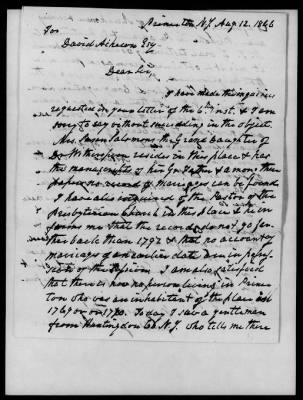 Princeton N.J. Aug 12. 1846
For
David Acheson Esq
Dear Sir,
I have made the inquiries
requested in your letter of the 6th inst. & I am
sorry to say without succeeding in the object.
Mrs Susan Salomons the Grand Daughter of
Dr Witherspoon resides in this place & has
the manuscripts of her Gr. Father & among them
papers no record of marriages can be found.
I have also inquired of the Pastor of the
Presbyterian Church in this place & he in
forms me that the records do not go far
ther back than 1792 & that no account of
marriages of an earlier date are in posses
sion of the Session. I am also satisfied
that there is now no person living in Prince
ton who was an inhabitant of the place in
1769 or in 1770. Today I saw a gentleman
from Huntingdon Co. N.J. who tells me there